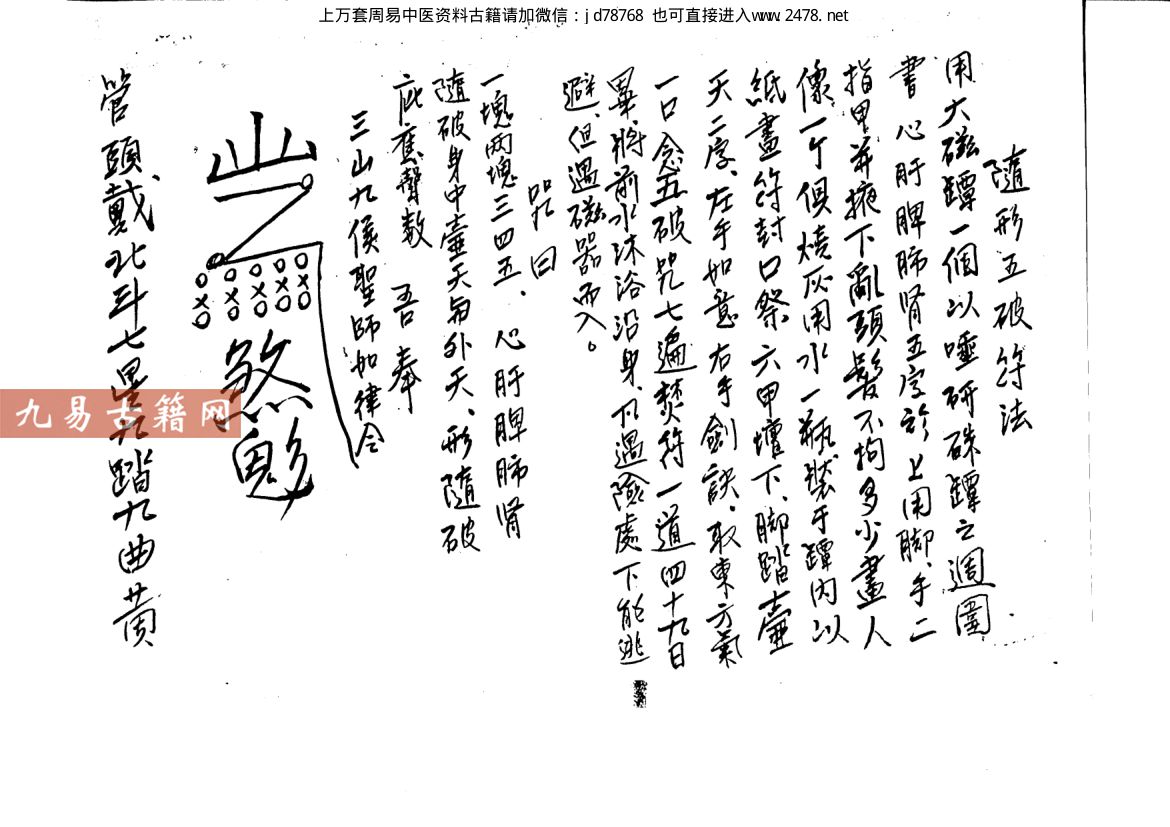 上万套周易中医资料古籍请加微信：jd78768 也可直接进入www.2478.net
隨形五破符法
用大磁罈一個以唾研硃罈之週圍
書心肝脾肺肾五字於上用脚、手二
指甲並掖下亂頭髮不拘多少畫人
像一个俱燒灰用水一瓶裝于罈内以
紙畫符封口祭六甲壇下、脚踏壷
天二字、左手如意右手劍訣、取東方氣
一口念五破咒七遍焚符一道四十九日
畢、將前水沐浴沿身、凡遇險處下能逃
避、但遇磁器而入。
咒曰
一塊两塊三四五、心肝脾肺肾
隨破身中壷天与外天、形隨破
庇應聲数 吾奉
三山九侯聖師如律令
管頭戴北斗七星九踏九曲黄
九易古籍网